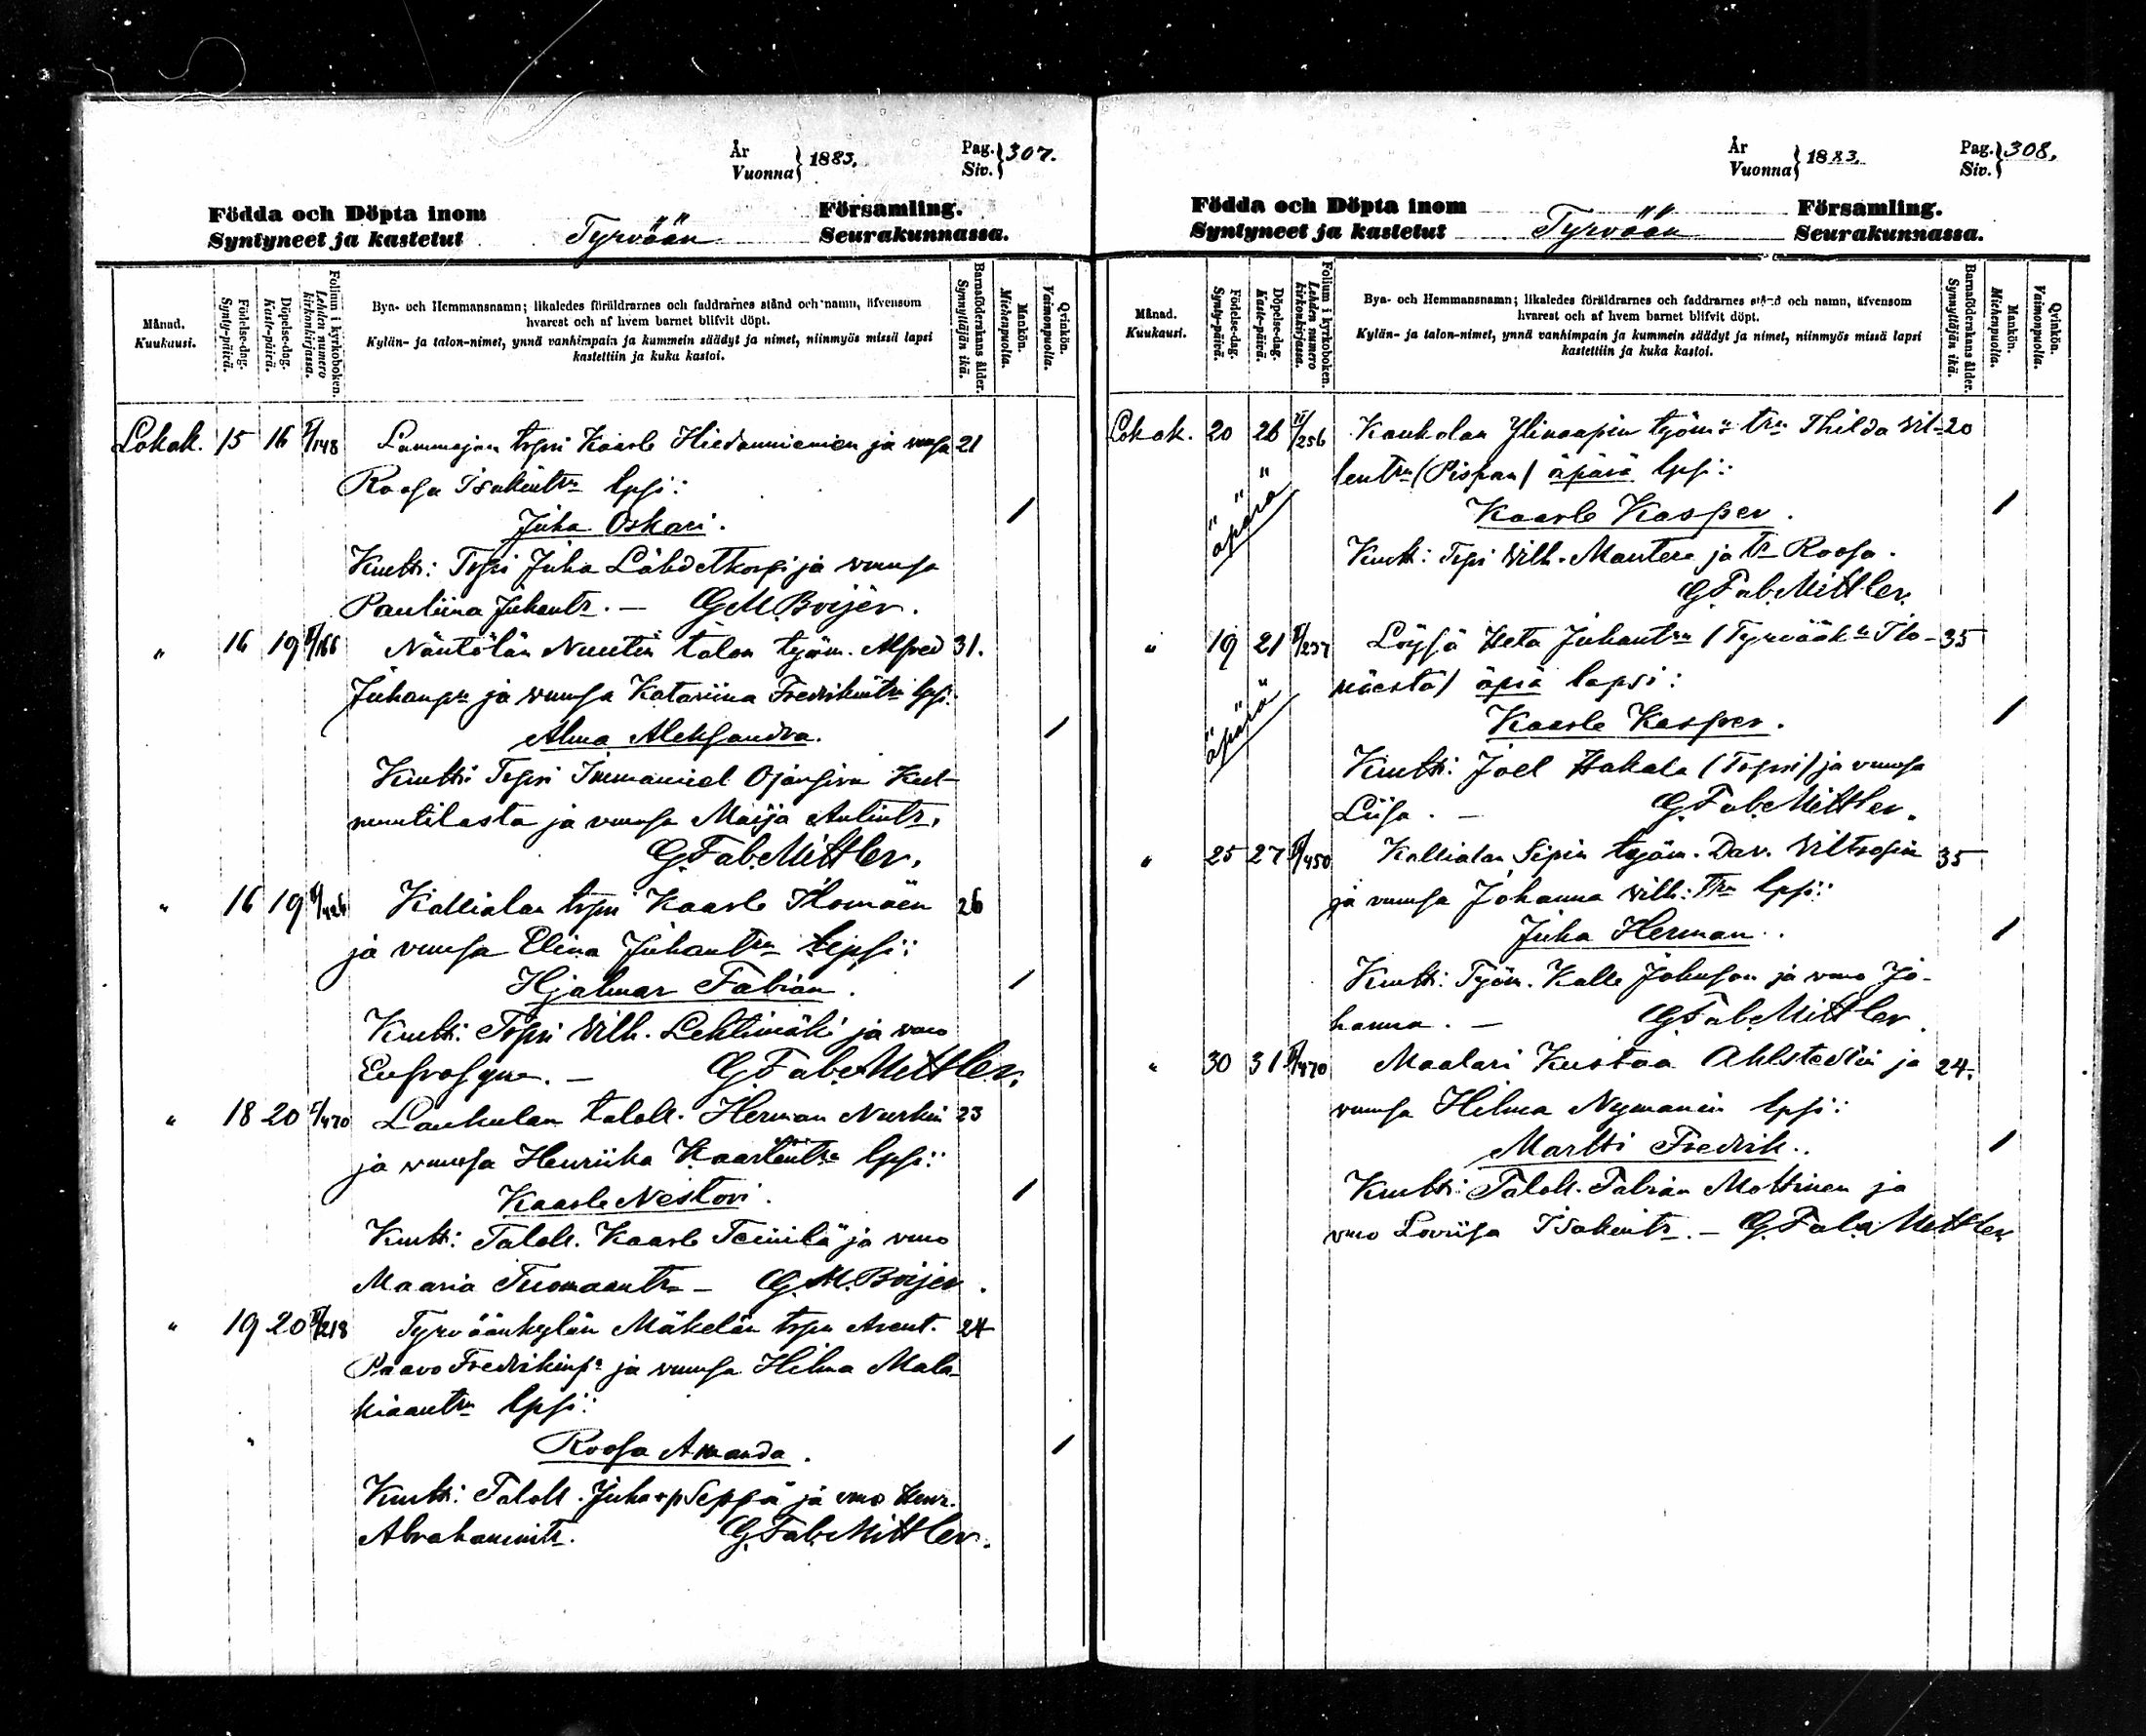 År
Vuonna } 1883.
Pag.
Siv. } 307.
Födda och Döpta inom
Syntyneet ja kastetut
Tyrvään
Församling.
Seurakunnassa.
Månad.
Kuukausi.
Födelse-dag.
Synty-päivä.
Döpelse-dag.
Kaste-päivä.
Folium i kyrkoboken.
Lehden numero
kirkonkirjassa.
Bya- och Hemmansnamn; likaledes föräldrarnes och faddrarnes stånd och namn, äfvensom
hvarest och af hvem barnet blifvit döpt.
Kylän- ja talon-nimet, ynnä vanhimpain ja kummein säädyt ja nimet, niinmyös missä lapsi
kastettiin ja kuka kastoi.
Barnaföderskans ålder.
Synnyttäjän ikä.
Mankön.
Miehenpuolia.
Qvinkön.
Vaimonpuolia.
Lokak. 15 16 /148 Lammajan Kaarle Hiedanniemen ja 21
Roosa Isakintr lpsi:
Juha Oskari. /
Kmtt: Juha Lähdekorpi ja
Pauliina Juhantr. — G.M. Boijer.
" 16 19 /166 Näntölän Nuutin talon työm. Alfred 31.
Juhanp ja Katariina Fredrikintr lpsi:
Alma Aleksandra. /
Kmtt: Immanuel Ojansivu
ja Maija Antintr.
G. Fab. Mittler.
" 16 19 /426 Kallialan Kaarle Ilomäen 26
ja Elina Juhantr lapsi:
Hjalmar Fabian. /
Kmtt: Vilh. Lehtimäki ja vmo
Eufrosyne. — G. Fab. Mittler.
" 18 20 /470 Laukulan taloll. Herman Nurkin 23
ja Henriika Kaarlentr lpsi:
Kaarle Nestori. /
Kmtt: Taloll. Kaarle Teinilä ja vmo
Maaria Tuomaantr — G.M. Boijer.
" 19 20 /218 Tyrväänkylän Mäkelän 24
Paavo Fredrikinp ja Hilma Mala-
kiaantr lpsi:
Roosa Amanda. /
Kmtt: Taloll. Juha Seppä ja vmo Henr.
Abrahamintr. G. Fab. Mittler.
År
Vuonna } 1883.
Pag.
Siv. } 308.
Födda och Döpta inom
Syntyneet ja kastetut
Tyrvään
Församling.
Seurakunnassa.
Månad.
Kuukausi.
Födelse-dag.
Synty-päivä.
Döpelse-dag.
Kaste-päivä.
Folium i kyrkoboken.
Lehden numero
kirkonkirjassa.
Bya- och Hemmansnamn; likaledes föräldrarnes och faddrarnes stånd och namn, äfvensom
hvarest och af hvem barnet blifvit döpt.
Kylän- ja talon-nimet, ynnä vanhimpain ja kummein säädyt ja nimet, niinmyös missä lapsi
kastettiin ja kuka kastoi.
Barnaföderskans ålder.
Synnyttäjän ikä.
Mankön.
Miehenpuolia.
Qvinkön.
Vaimonpuolia.
Lokak. 20 26 /256 Kaukolan työm: trn Thilda Vil- 20
lentrn (Pispan) äpärä lpsi:
äpärä
Kaarle Kasper. /
Kmtt: Vilh. Mantere ja tr Roosa.
G. Fab. Mittler.
" 19 21 /257 Löysä Heta Juhantrn (Tyrvääk: Ilo- 35
mäestä) äprä lapsi:
äpärä
Kaarle Kasper. /
Kmtt: Joel Hakala ja
Liisa. — G. Fab. Mittler.
" 25 27 /450 Kallialan Sipin työm. Dav. 35
ja Johanna Vilh: trn lpsi:
Juha Herman. /
Kmtt: Työm. Kalle Johnson ja vmo Jo-
hanna. — G. Fab. Mittler.
" 30 31 /470 Maalari Kustaa Ahlstedtin ja 24.
Hilma Nymanin lpsi:
Martti Fredrik. /
Kmtt: Taloll. Fabian Mottinen ja
vmo Loviisa Isakintr. — G. Fab. Mittler